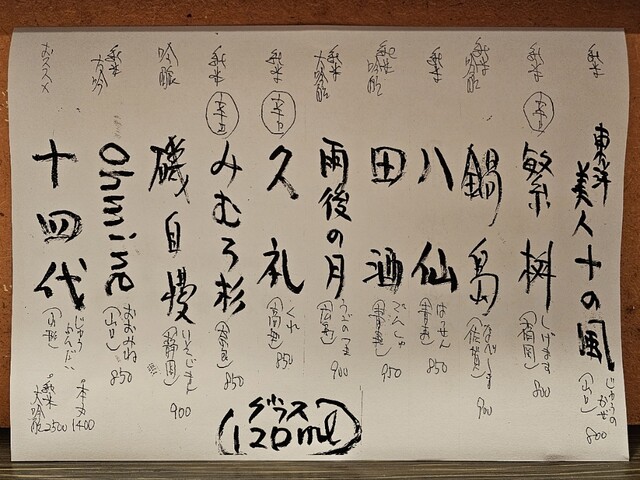 純米
東洋
美人 十の風
じゅうの
かぜ
(山口)
800
純米
辛口
繁桝
しげます
(福岡)
800
純米
吟醸
鍋島
なべしま
(佐賀)
900
純米
八仙
はっせん
(青森)
850
純米
吟醸
田酒
でんしゅ
(青森)
950
純米
大吟醸
雨後の月
うごのつき
(広島)
900
純米
辛口
久礼
くれ
(高知)
850
純米
辛口
みむろ杉
(奈良)
850
吟醸
磯自慢
いそじまん
(静岡)
900
純米
大吟
Ohmine
おおみね
(山口)
850
おススメ
十四代
じゅう
よんだい
(山形)
本丸
1400
純米
大吟醸
2500
グラス
(120ml)